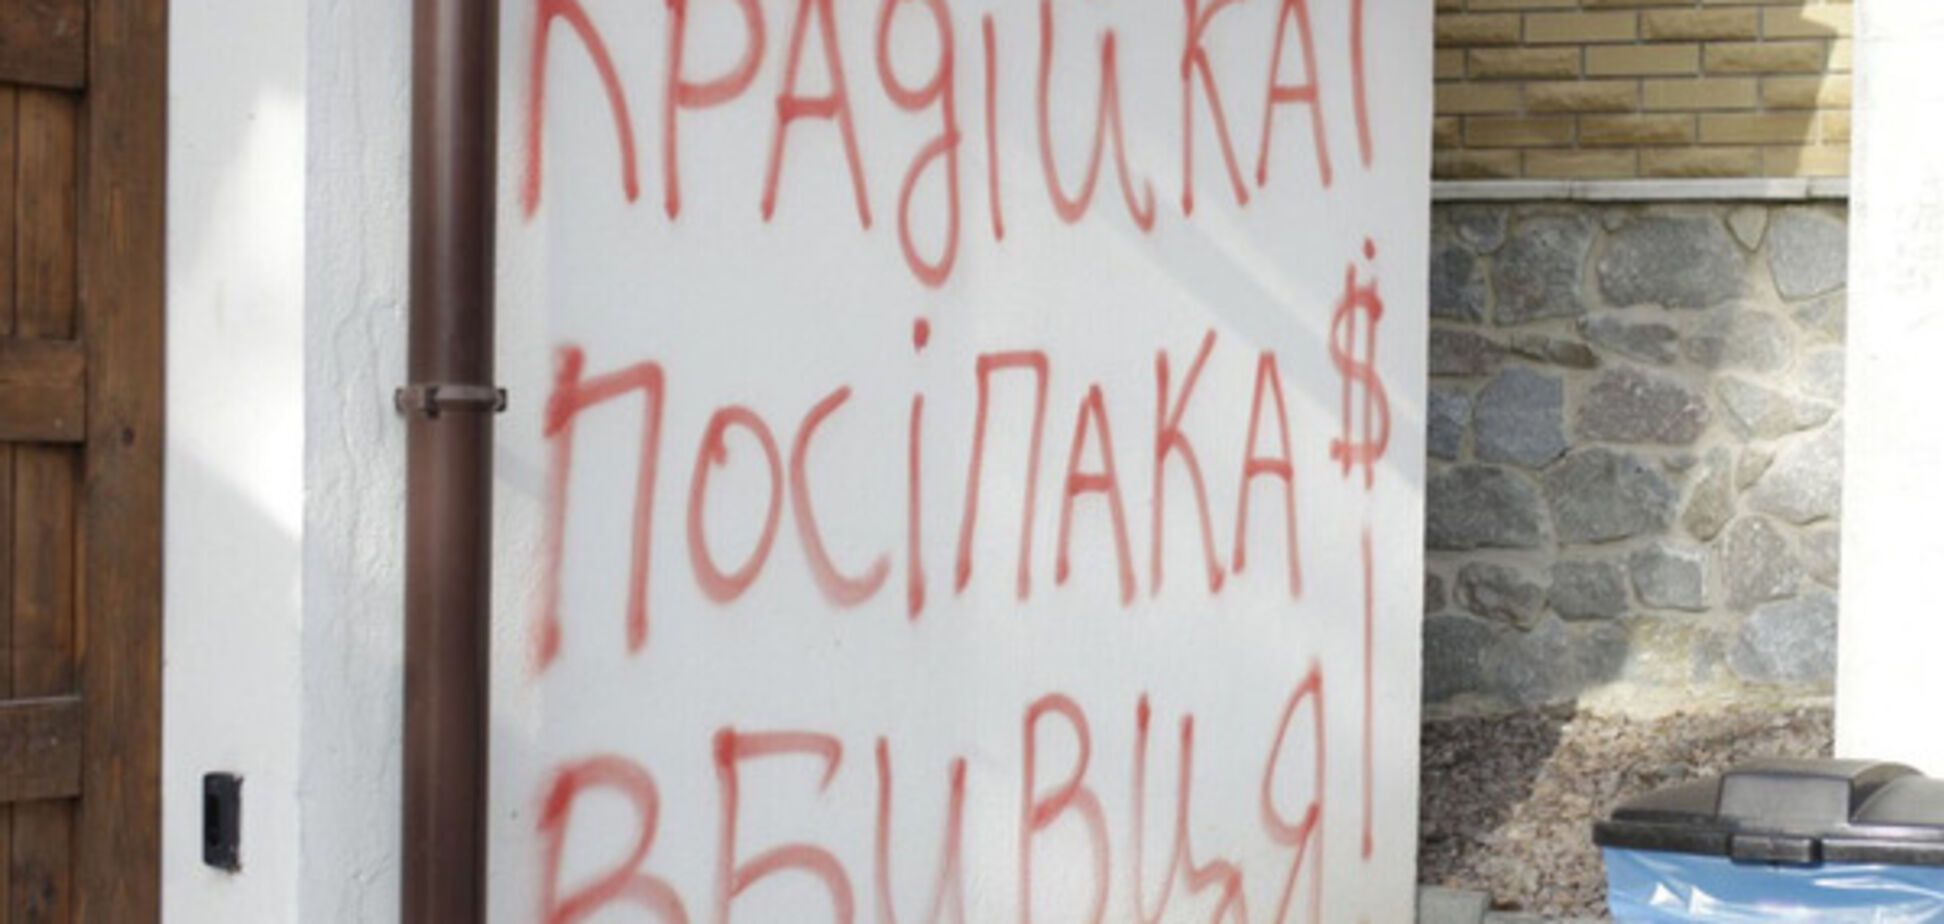 КРАДІЙКА!
ПОСІПАКА $
ВБИВЦЯ!